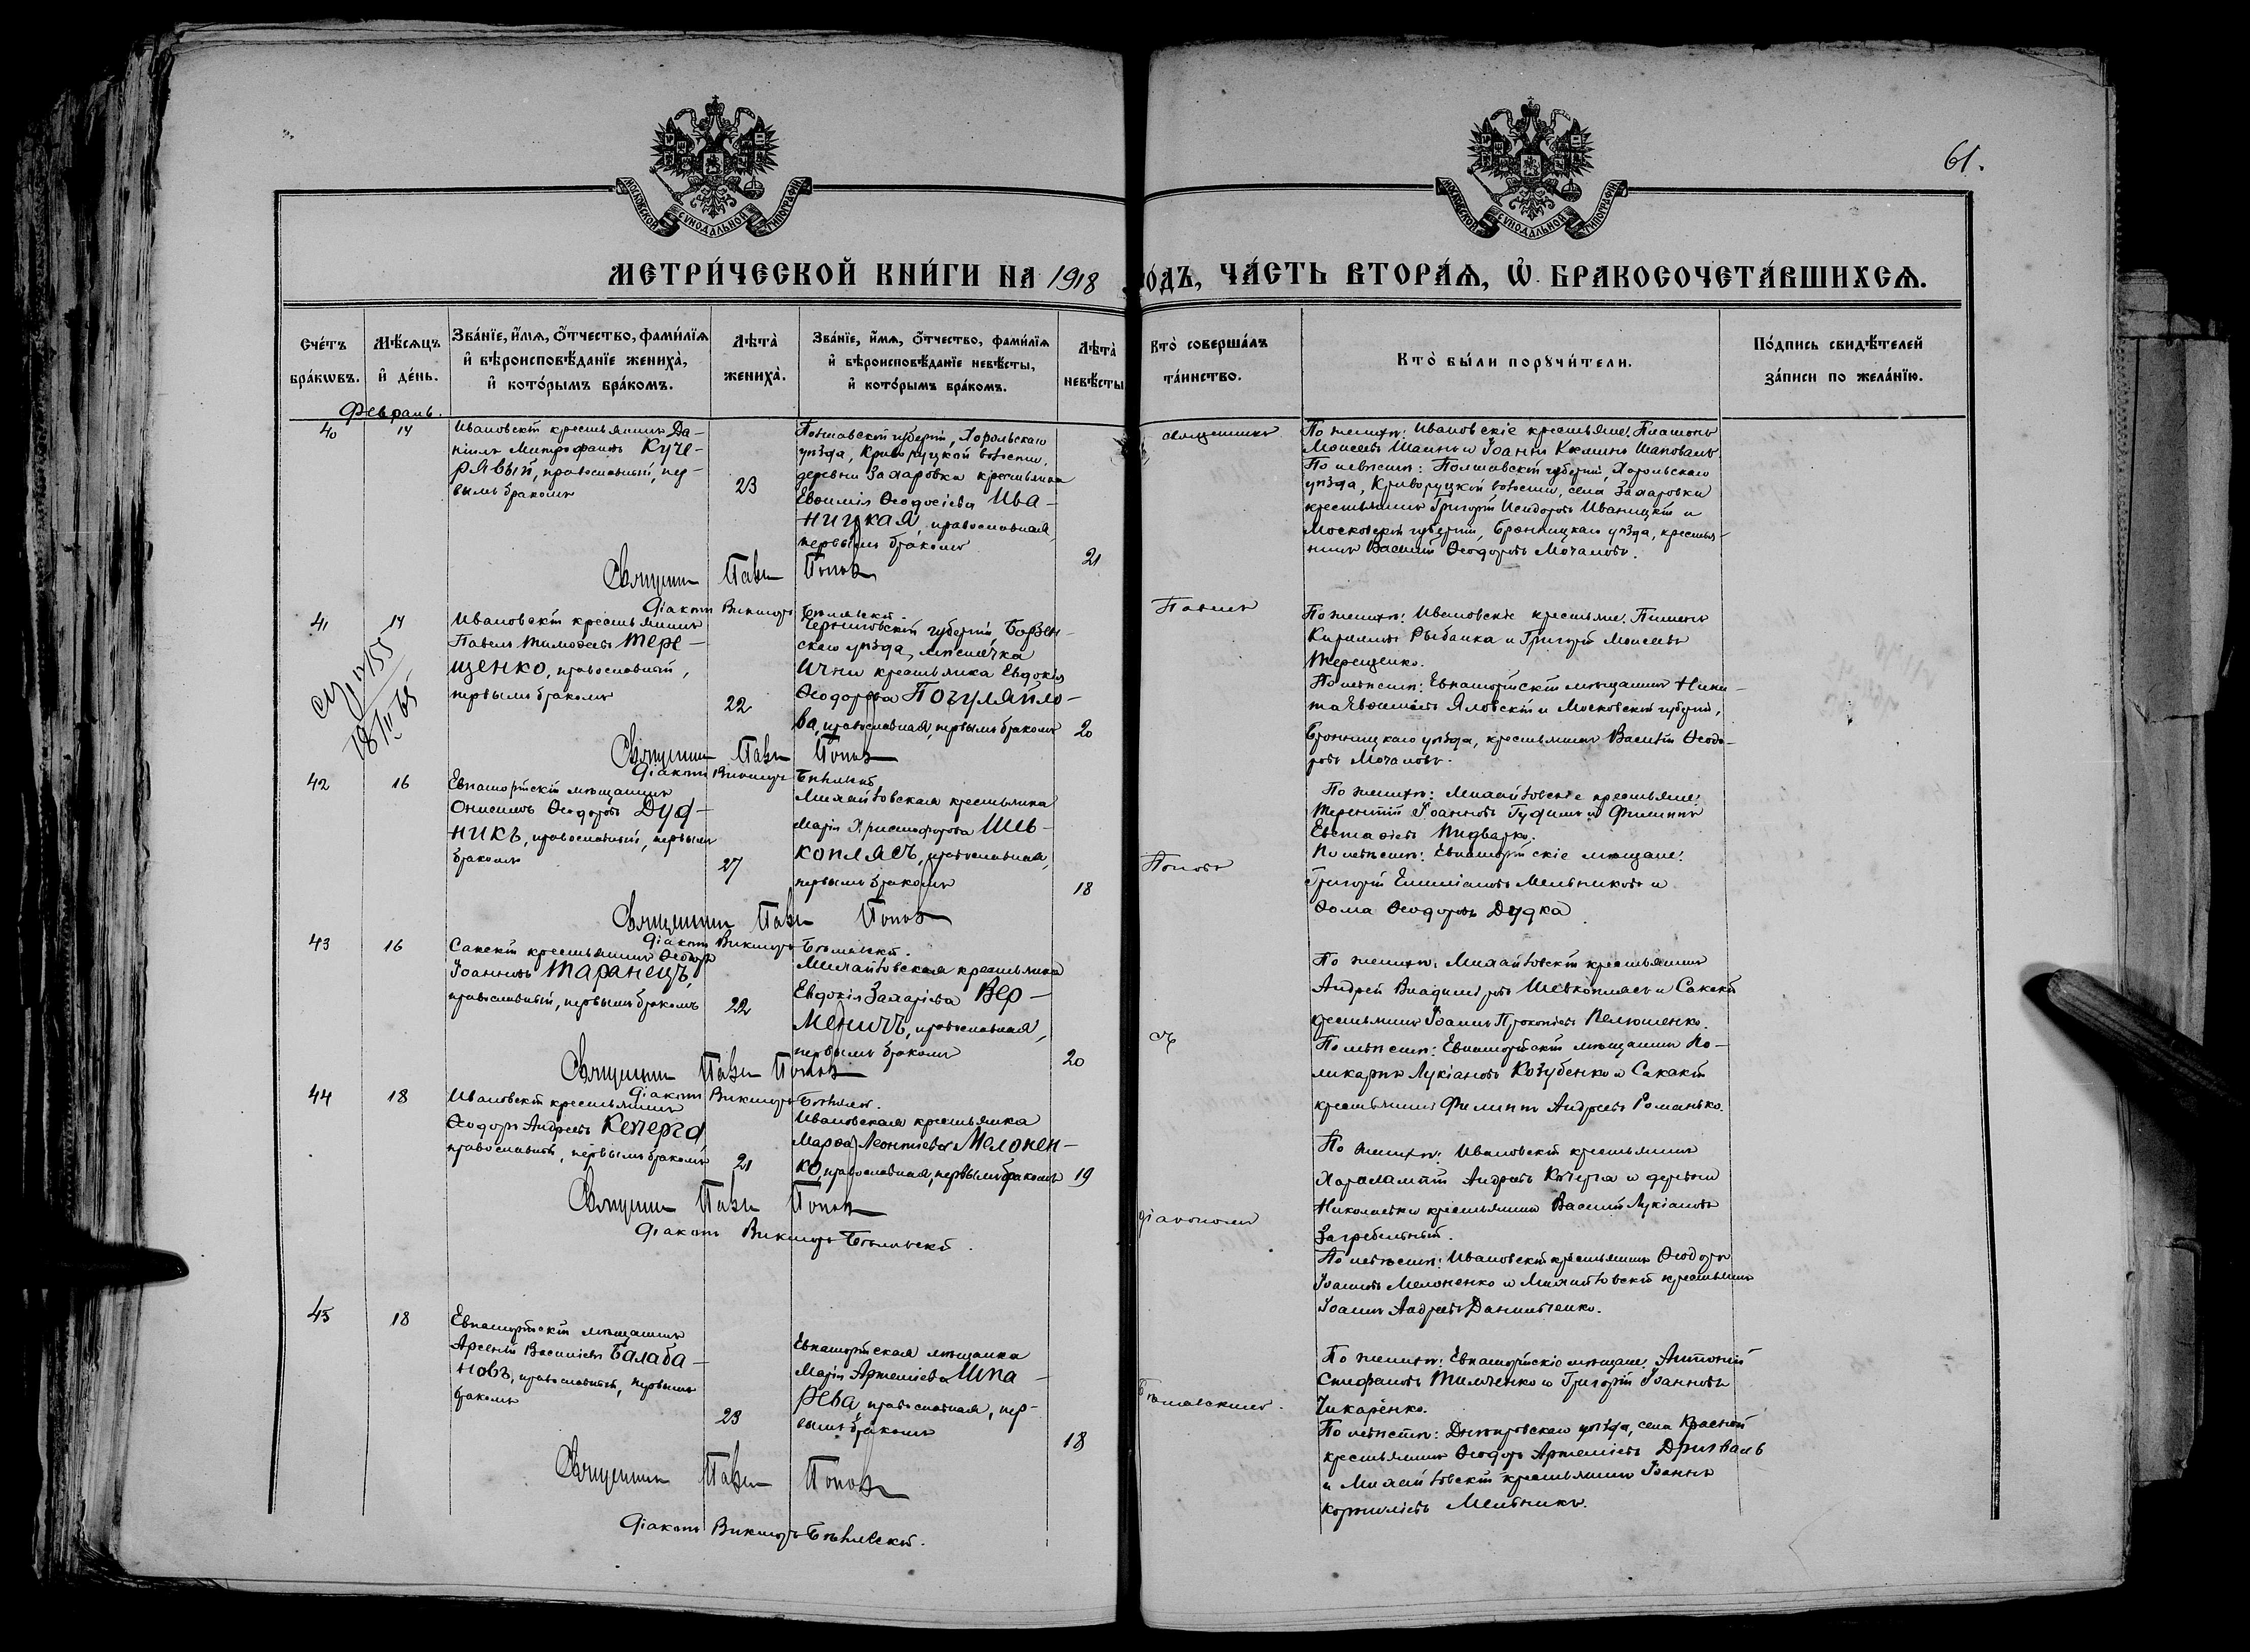 61.
МОСКОВСКОЙ СѴНОДАЛЬНОЙ ТИПОГРАФІИ
МОСКОВСКОЙ СѴНОДАЛЬНОЙ ТИПОГРАФІИ
МЕТРИ́ЧЕСКОЙ КНИ́ГИ НА 1918 ГО́ДЪ, ЧА́СТЬ ВТОРА́Ѧ, Ѽ БРАКОСОЧЕТА́ВШИХСѦ.
Сче́тъ бра́кѡвъ.
Мѣ́сѧцъ и҆ де́нь.
Зва́нїе, и҆́мѧ, ѻ҆́тчество, фами́лїѧ
и҆ вѣроисповѣ́данїе жениха̀,
и҆ кото́рымъ бра́комъ.
Лѣ́та̀ жениха̀.
Зва́нїе, и҆́мѧ, ѻ҆́тчество, фами́лїѧ
и҆ вѣроисповѣ́данїе невѣ́сты,
и҆ кото́рымъ бра́комъ.
Лѣ́та̀ невѣ́сты
Кто̀ соверша́лъ та́инство.
Кто̀ бы́ли порꙋчи́тели.
По́дпись свидѣ́телей за́писи по жела́нїю.
Февраль.
40
14
Ивановскій крестьянинъ Да-
ніилъ Митрофановъ Куче-
рявый, православный, пер-
вымъ бракомъ
23
Полтавской губерніи, Хорольскаго
уѣзда, Криворуцкой волости,
деревни Захаровки крестьянка
Евѳимія Ѳеодосіева Ива-
ницкая, православная,
первымъ бракомъ
21
священникъ
По женихѣ: Ивановскіе крестьяне: Платонъ
Моисеевъ Шаинъ и Іоаннъ Шаповалъ.
По невѣстѣ: Полтавской губерніи, Хорольскаго
уѣзда, Криворуцкой волости, села Захаровки
крестьянинъ Григорій Исидоровъ Иваницкій и
Московской губерніи, Бронницкаго уѣзда, крестья-
нинъ Василій Ѳеодоровъ Мочаловъ.
Священникъ Павелъ Поповъ
Діаконъ Викторъ Бѣльскій.
41
14
1755
18/II 65
Ивановскій крестьянинъ
Павелъ Тимоѳеевъ Тере-
щенко, православный,
первымъ бракомъ
22
Черниговской губерніи, Борзен-
скаго уѣзда, мѣстечка
Ични крестьянка Евдокія
Ѳеодорова Погуляйло-
ва, православная, первымъ бракомъ
20
Павелъ
По женихѣ: Ивановскіе крестьяне: Пименъ
Кирилловъ Рыбалка и Григорій Моисеевъ
Терещенко.
По невѣстѣ: Евпаторійскій мѣщанинъ Ники-
та Евѳиміевъ Яловскій и Московской губерніи,
Бронницкаго уѣзда, крестьянинъ Василій Ѳеодо-
ровъ Мочаловъ.
Священникъ Павелъ Поповъ
Діаконъ Викторъ Бѣльскій
42
16
Евпаторійскій мѣщанинъ
Онисимъ Ѳеодоровъ Дуд-
никъ, православный, первымъ
бракомъ
27
Михайловская крестьянка
Марія Христофорова Шев-
коплясъ, православная,
первымъ бракомъ
18
Поповъ
По женихѣ: Михайловскіе крестьяне:
Терентій Іоанновъ Гудимъ и Филиппъ
Евстаѳіевъ Пидварко.
По невѣстѣ: Евпаторійскіе мѣщане:
Григорій Емиліановъ Мельниковъ и
Ѳома Ѳеодоровъ Дудка
Священникъ Павелъ Поповъ
Діаконъ Викторъ Бѣльскій.
43
16
Сакскій крестьянинъ Ѳеодоръ
Іоанновъ Таранецъ,
православный, первымъ бракомъ
22
Михайловская крестьянка
Евдокія Захаріева Вер-
меничъ, православная,
первымъ бракомъ
20
съ
По женихѣ: Михайловскій крестьянинъ
Андрей Владиміровъ Шевкоплясъ и Сакскій
крестьянинъ Іоаннъ Прокопіевъ Пелюшенко.
По невѣстѣ: Евпаторійскій мѣщанинъ По-
ликарпъ Лукіановъ Козубенко и Сакскій
крестьянинъ Филиппъ Андреевъ Романько.
Священникъ Павелъ Поповъ
Діаконъ Викторъ Бѣльскій.
44
18
Ивановскій крестьянинъ
Ѳеодоръ Андреевъ Кочерга
православный, первымъ бракомъ
21
Ивановская крестьянка
Марѳа Леонтіева Мелонен-
ко, православная, первымъ бракомъ
19
діакономъ
По женихѣ: Ивановскій крестьянинъ
Харалампій Андреевъ Кочерга и деревни
Николаевки крестьянинъ Василій Лукіановъ
Загребельный.
По невѣстѣ: Ивановскій крестьянинъ Ѳеодоръ
Іоанновъ Мелоненко и Михайловскій крестьянинъ
Іоаннъ Андреевъ Данильченко.
Священникъ Павелъ Поповъ
Діаконъ Викторъ Бѣльскій.
45
18
Евпаторійскій мѣщанинъ
Арсеній Василіевъ Балаба-
новъ, православный, первымъ
бракомъ
23
Евпаторійская мѣщанка
Марія Артеміева Шпа-
рева, православная, пер-
вымъ бракомъ
18
Бѣльскимъ.
По женихѣ: Евпаторійскіе мѣщане: Антоній
Стефановъ Тимченко и Григорій Іоанновъ
Чикаренко.
По невѣстѣ: Днѣпровскаго уѣзда, села Красной
крестьянинъ Ѳеодоръ Артеміевъ Дригваль
и Михайловскій крестьянинъ Іоаннъ
Корниліевъ Мельникъ.
Священникъ Павелъ Поповъ
Діаконъ Викторъ Бѣльскій.